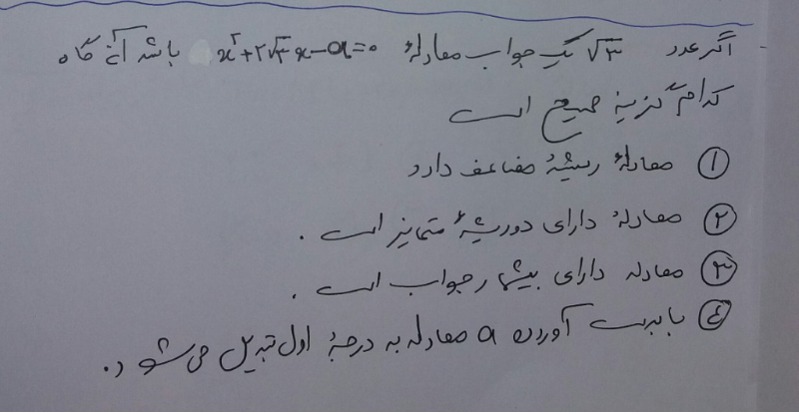 اگر عدد √۳ یک جواب معادلهٔ x²+۲√۳x-a=۰ باشد آنگاه
کدام گزینه صحیح است
① معادلهٔ ریشهٔ مضاعف دارد
② معادلهٔ دارای دوریشهٔ متمایز است.
③ معادله دارای بیشمار جواب است.
④ با بدست آوردن a معادله به درجهٔ اول تبدیل می‌شود.